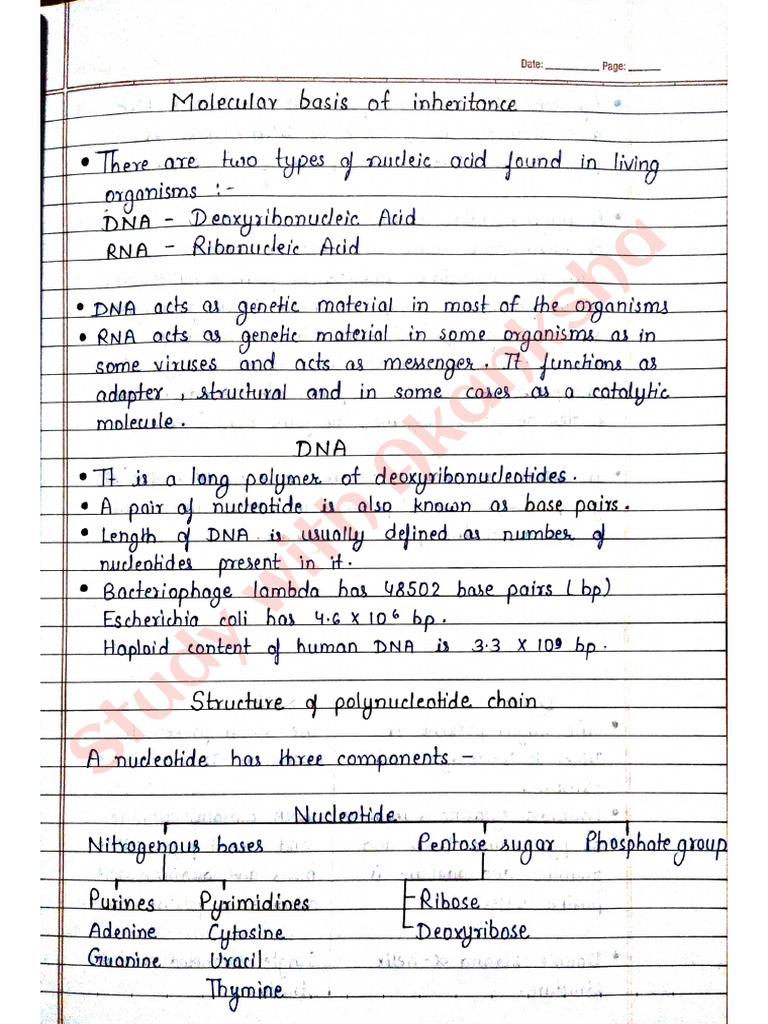 Date: ________ Page: _____
Molecular basis of inheritance
• There are two types of nucleic acid found in living
organisms :-
DNA - Deoxyribonucleic Acid
RNA - Ribonucleic Acid
• DNA acts as genetic material in most of the organisms
• RNA acts as genetic material in some organisms as in
some viruses and acts as messenger. It functions as
adapter, structural and in some cases as a catalytic
molecule.
DNA
• It is a long polymer of deoxyribonucleotides.
• A pair of nucleotide is also known as base pairs.
• Length of DNA is usually defined as number of
nucleotides present in it.
• Bacteriophage lambda has 48502 base pairs (bp)
Escherichia coli has 4.6 X 10⁶ bp.
Haploid content of human DNA is 3.3 X 10⁹ bp.
Structure of polynucleotide chain
A nucleotide has three components -
Nucleotide
Nitrogenous bases Pentose sugar Phosphate group
Purines Pyrimidines Ribose
Adenine Cytosine Deoxyribose
Guanine Uracil
Thymine
Study with Akanksha